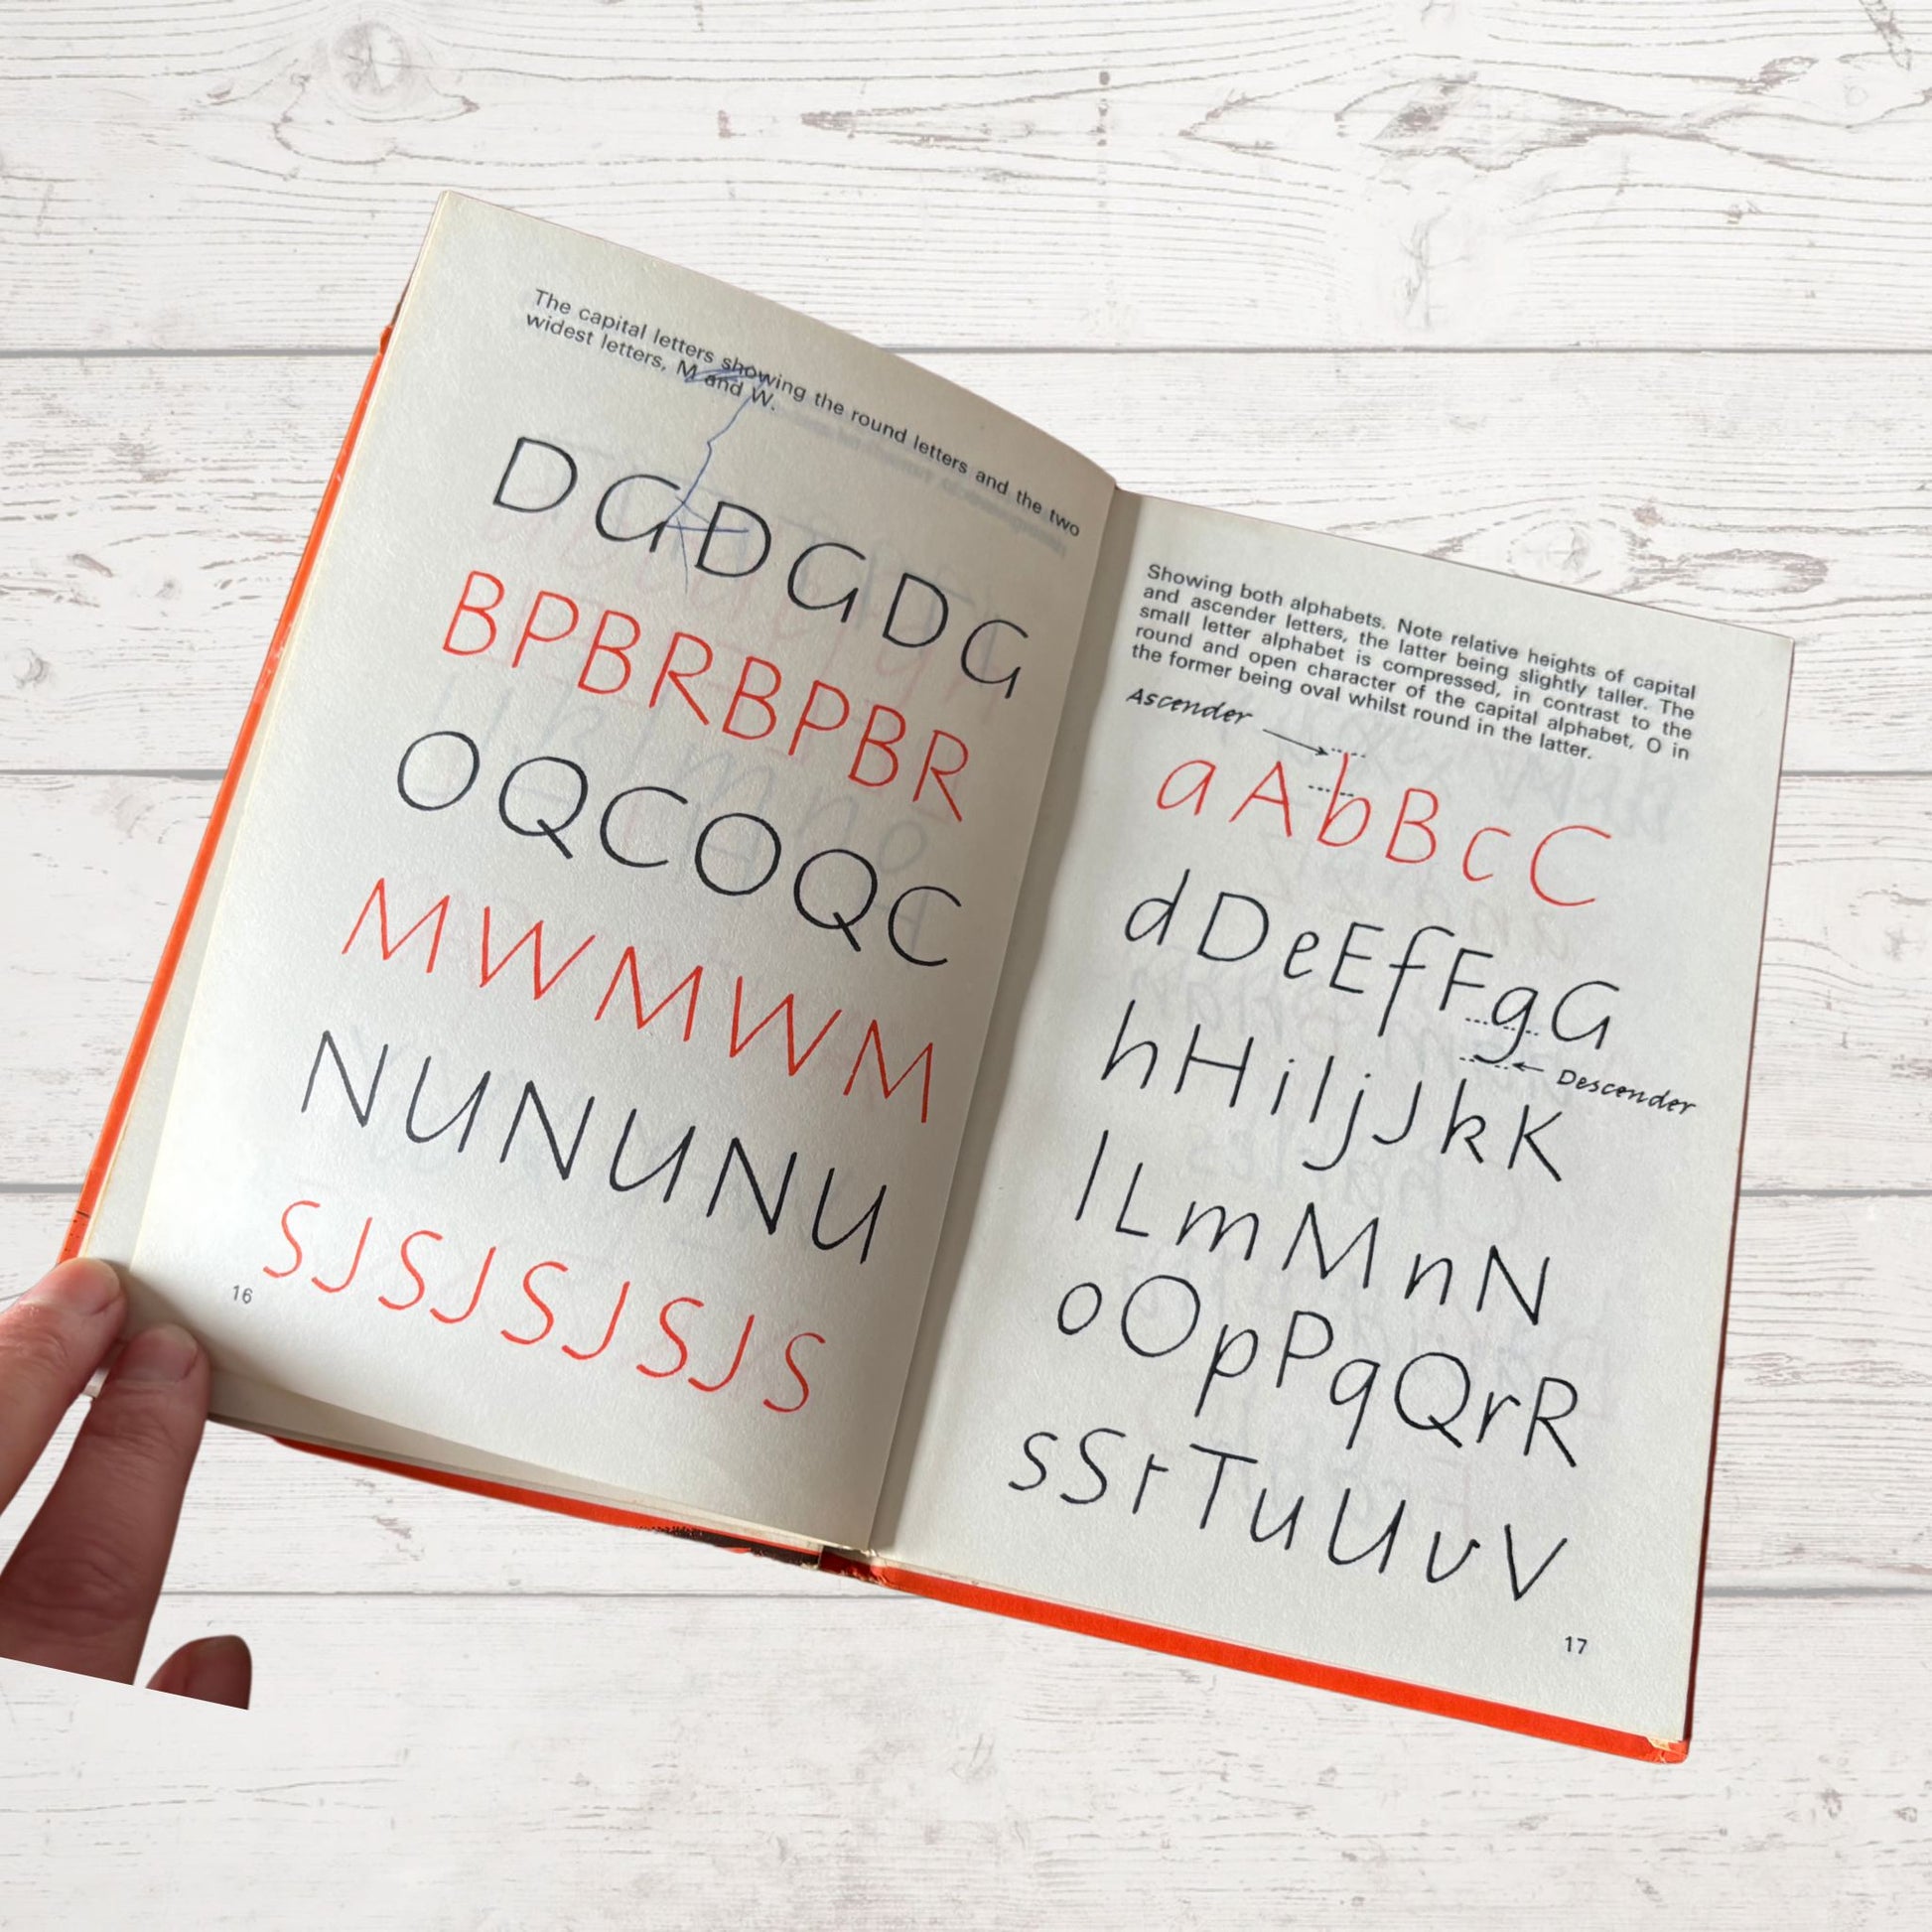 The capital letters showing the round letters and the two
widest letters, M and W.
D G D G D G
B P B R B P B R
O Q C O Q C
M W M W M
N U N U N U
S J S J S J S J S
16
Showing both alphabets. Note relative heights of capital
and ascender letters, the latter being slightly taller. The
small letter alphabet is compressed, in contrast to the
round and open character of the capital alphabet, O in
the former being oval whilst round in the latter.
Ascender
a A b B c C
d D e E f F g G
Descender
h H i I j J k K
l L m M n N
o O p P q Q r R
s S t T u U v V
17